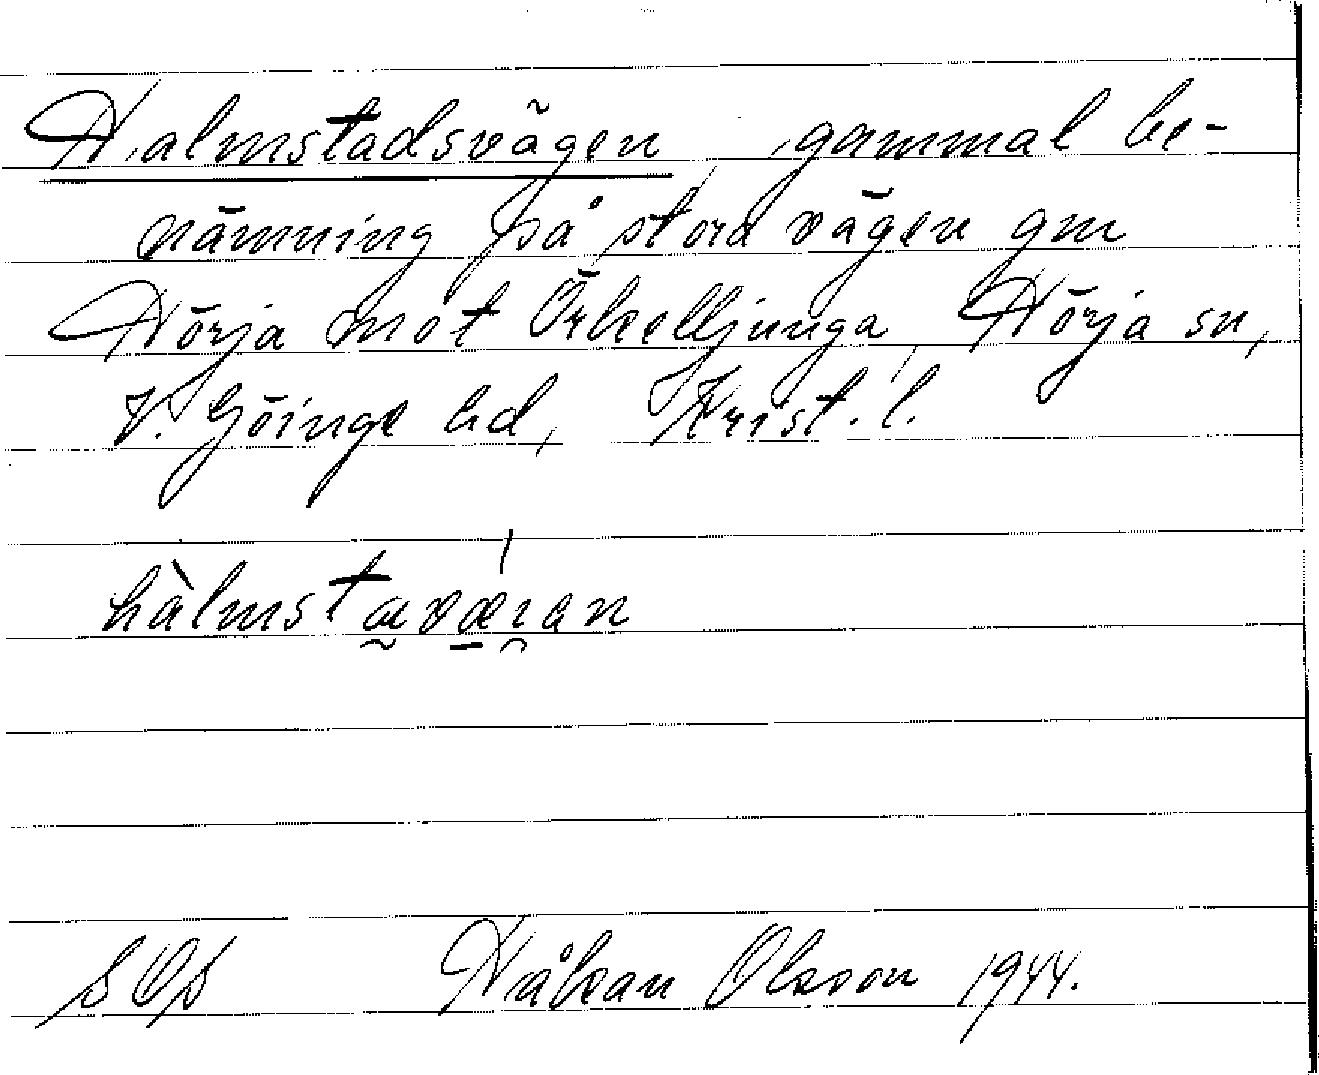 Halmstadsvägen, gammal be-
nämning på stora vägen gm
Hörja mot Örkelljunga, Hörja sn,
V. Göinge hd, Krist. l.
hàlmstavæ̱ɪan
SOS Håkan Olsson 1944.